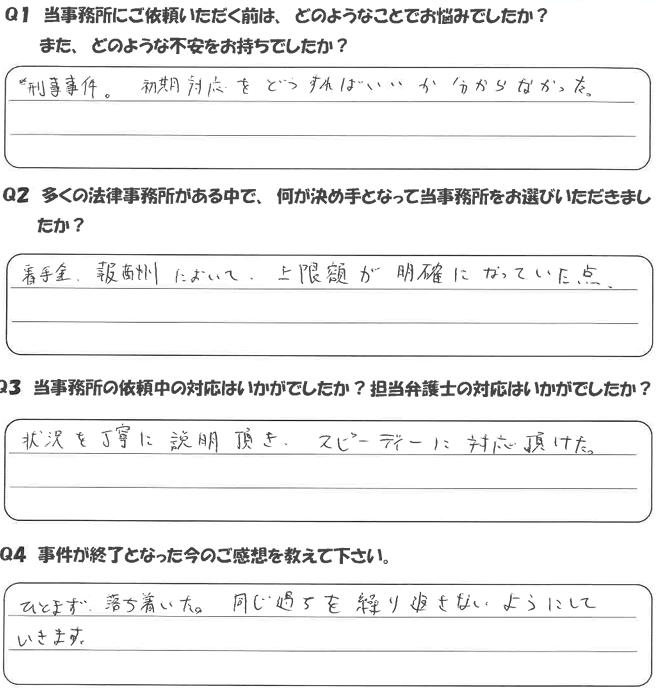 Q1 当事務所にご依頼いただく前は、どのようなことでお悩みでしたか？
また、どのような不安をお持ちでしたか？
刑事事件。 初期対応をどうすればいいか分からなかった。
Q2 多くの法律事務所がある中で、何が決め手となって当事務所をお選びいただきまし
たか？
着手金、報酬において、上限額が明確になっていた点、
Q3 当事務所の依頼中の対応はいかがでしたか？担当弁護士の対応はいかがでしたか？
状況を丁寧に説明頂き、スピーディーに対応頂けた。
Q4 事件が終了となった今のご感想を教えて下さい。
ひとまず、落ち着いた。 同じ過ちを繰り返さないようにして
いきます。